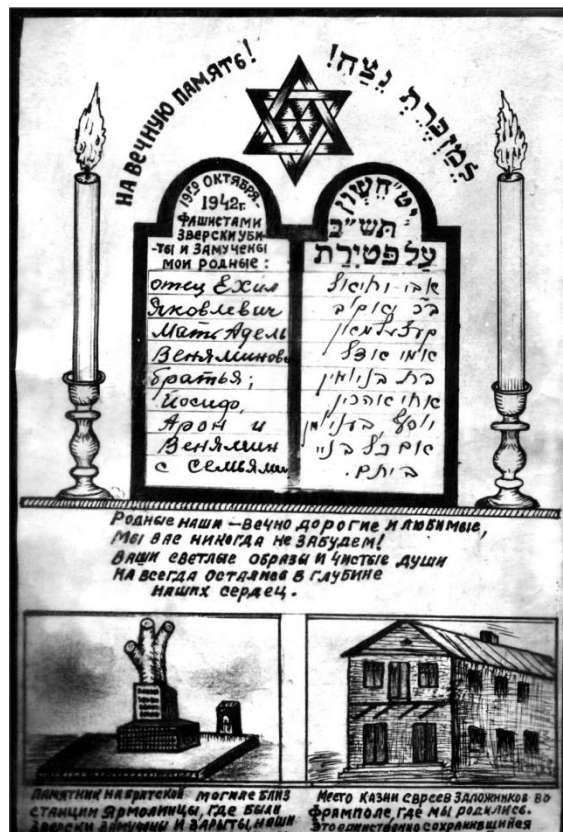 НА ВЕЧНУЮ ПАМЯТЬ!
לְמַזְכֶּרֶת נֶצַח!
19го ОКТЯБРЯ-
1942г.
ФАШИСТАМИ
ЗВЕРСКИ УБИ-
-ТЫ И ЗАМУЧЕНЫ
МОИ РОДНЫЕ:
отец Ехил
Яковлевич
Мать Адель
Веняминовн
братья;
Иосиф,
Арон и
Венямин
с семьями
ט"חשון
תש"ב
עַל פטירת
אבי יחיאל
בר יעקב
אמי אדל
בת בנימין
אחי אהרון
יוסף, בנימין
עם כל בני
ביתם.
РОДНЫЕ НАШИ — ВЕЧНО ДОРОГИЕ И ЛЮБИМЫЕ,
МЫ ВАС НИКОГДА НЕ ЗАБУДЕМ!
ВАШИ СВЕТЛЫЕ ОБРАЗЫ И ЧИСТЫЕ ДУШИ
НА ВСЕГДА ОСТАЛИСЬ В ГЛУБИНЕ
НАШИХ СЕРДЕЦ.
ПАМЯТНИК НА БРАТСКОЙ МОГИЛЕ БЛИЗ
СТАНЦИИ ЯРМОЛИНЦЫ, ГДЕ БЫЛИ
ЗВЕРСКИ ЗАМУЧЕНЫ И ЗАРЫТЫ НАШИ
МЕСТО КАЗНИ ЕВРЕЕВ ЗАЛОЖНИКОВ ВО
ФРАМПОЛЕ, ГДЕ МЫ РОДИЛИСЬ.
ЭТО ЕДИНСТВЕННО СОХРАНИВШИЙСЯ